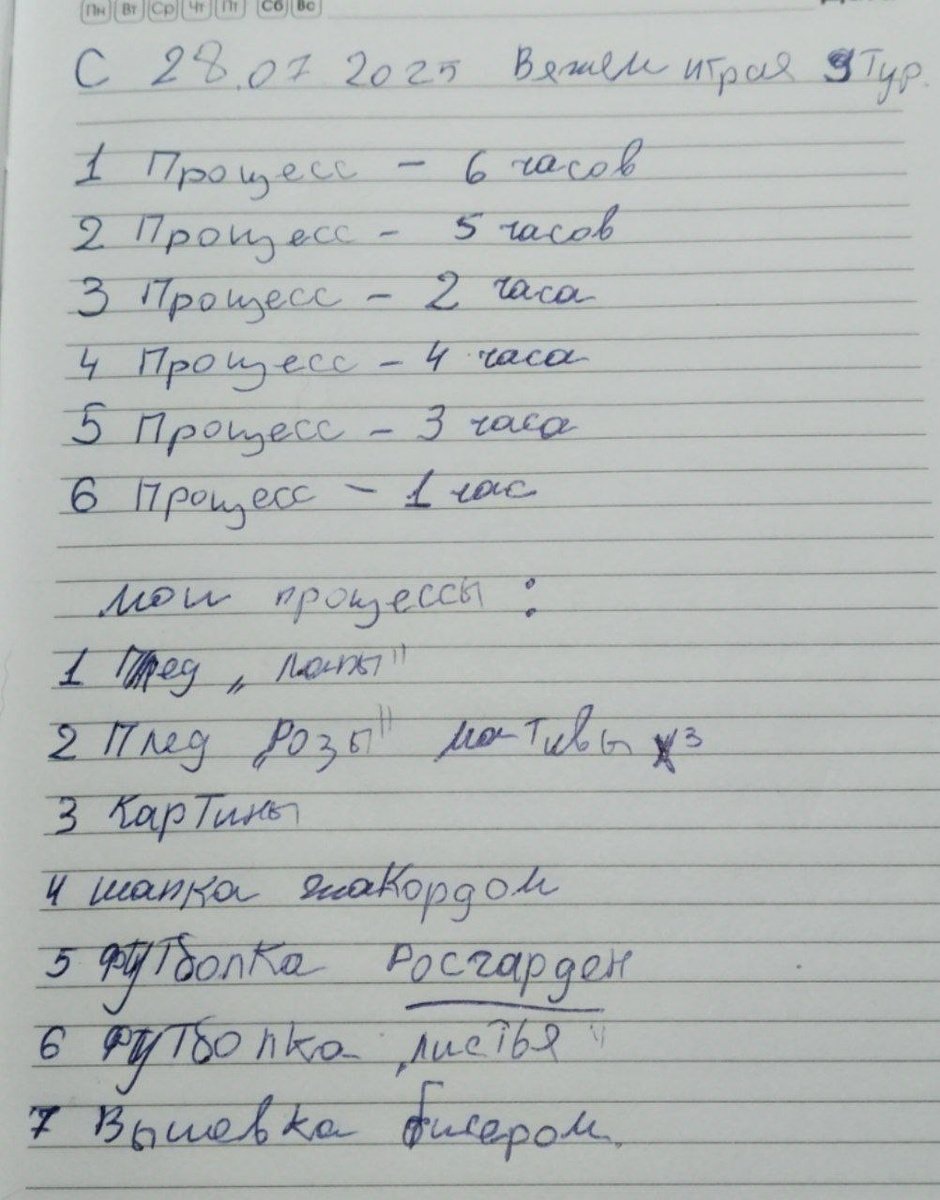 Пн Вт Ср Чт Пт Сб Вс
С 28.07 2025 Вяжем играя 9 Тур.
1 Процесс - 6 часов
2 Процесс - 5 часов
3 Процесс - 2 часа
4 Процесс - 4 часа
5 Процесс - 3 часа
6 Процесс - 1 час
мои процессы :
1 Плед „ лапы"
2 Плед „Розы" мотивы х3
3 Картины
4 шапка жакордом
5 Футболка Росгарден
6 Футболка „листья"
7 Вышевка бисером.